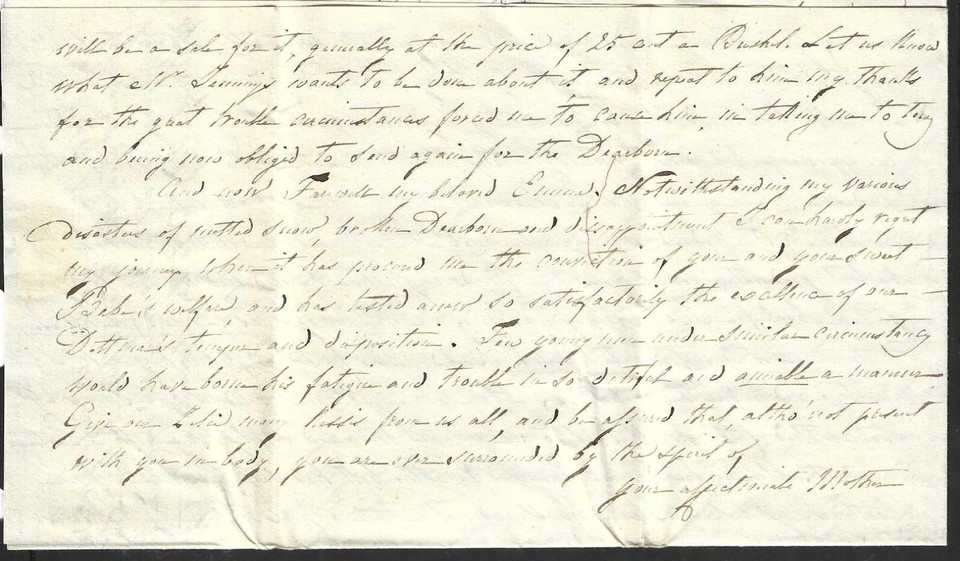 will be a sale for it, generally at the price of 25 cent a Bushel. Let us know
what Mr. Jennings wants to be done about it, and repeat to him my thanks
for the great trouble circumstances forced me to cause him, in taking me to
and being now obliged to send again for the Dearborn.
And now Farewell my beloved Emma. Notwithstanding my various
disasters of melted snow, broken Dearborn and disappointment I can hardly regret
my journey when it has procured me the conviction of your and your sweet
Bebe's welfare, and has tested anew so satisfactorily the excellence of our
temper and disposition. Few young men under similar circumstances
would have borne his fatigue and trouble in so dutiful and amiable a manner.
Give our many kisses from us all, and be assured that, altho' not present
with you in body, you are ever surrounded by the spirit of
your affectionate Mother